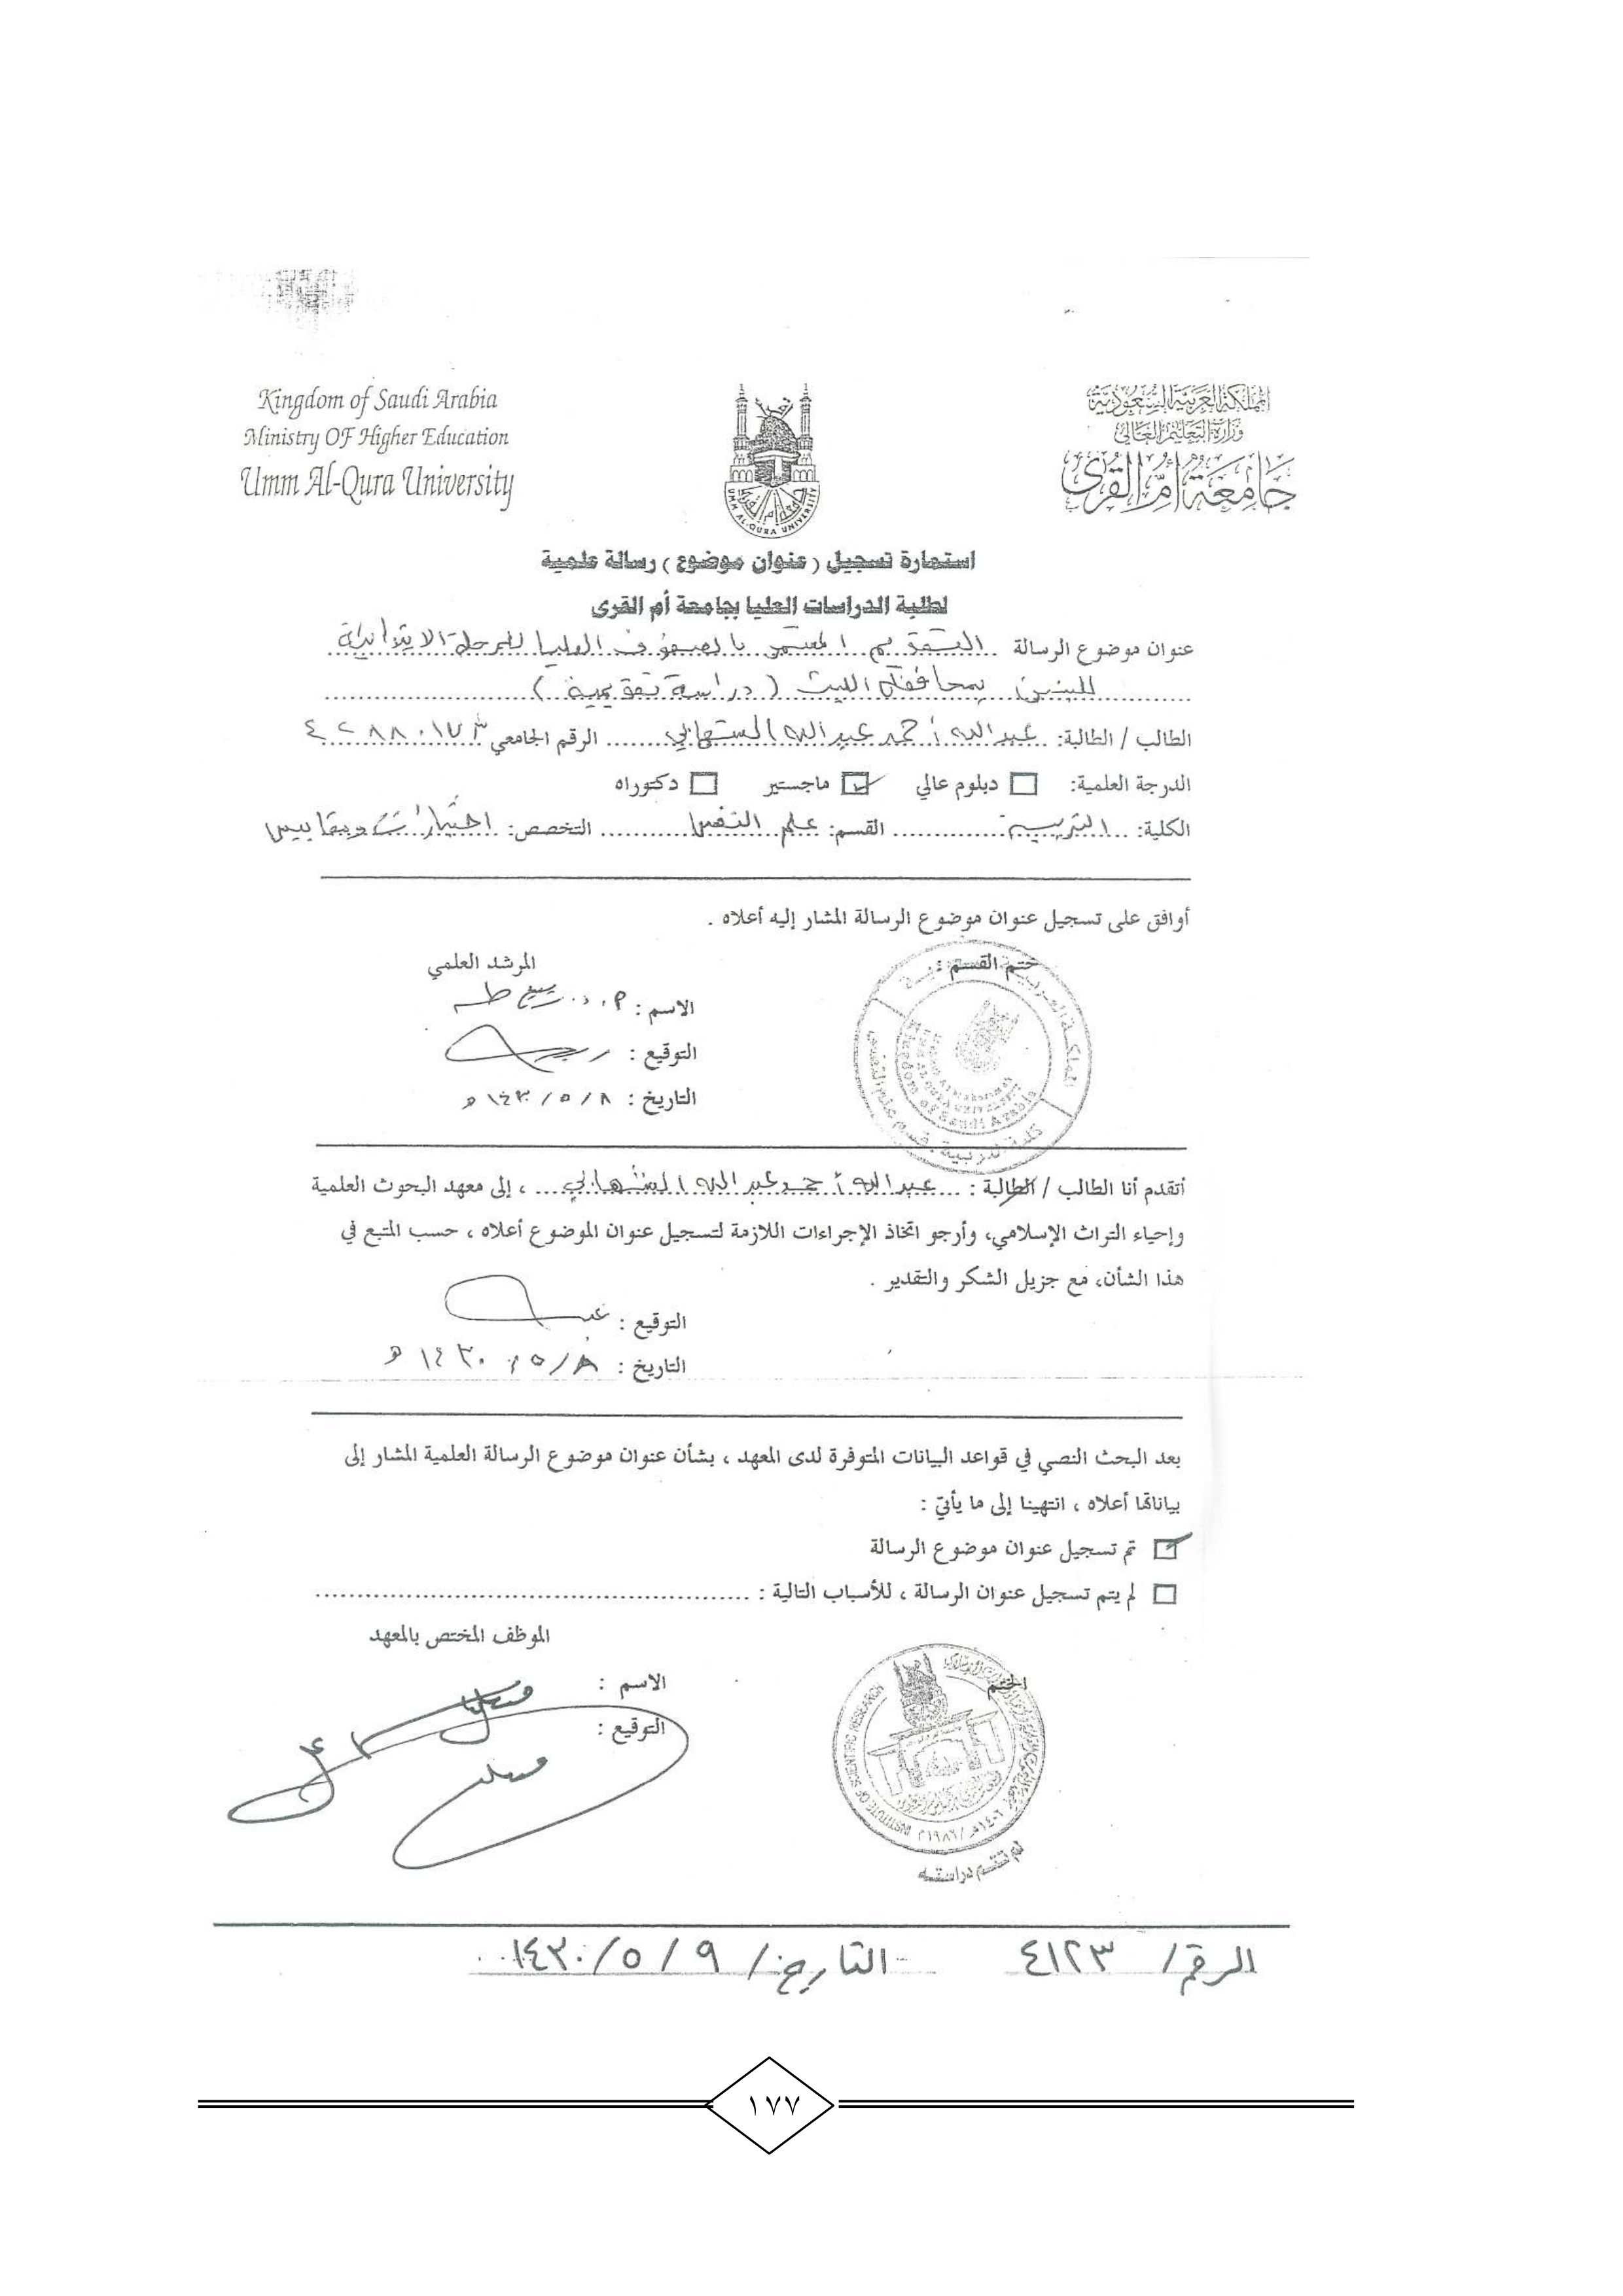 Kingdom of Saudi Arabia
Ministry OF Higher Education
Umm Al-Qura University
المملكة العربية السعودية
وزارة التعليم العالي
جامعة أم القرى
UMM AL-QURA UNIVERSITY
استمارة تسجيل ( عنوان موضوع ) رسالة علمية
لطلبة الدراسات العليا بجامعة أم القرى
عنوان موضوع الرسالة التقويم المستمر بالصفوف العليا للمرحلة الابتدائية
للبنين بمحافظة الليث ( دراسة تقويمية )
الطالب / الطالبة: عبدالله أحمد عبدالله السهابي الرقم الجامعي ٤٢٨٨٠١٧٣
الدرجة العلمية: □ دبلوم عالي ☑ ماجستير □ دكتوراه
الكلية: التربية القسم: علم النفس التخصص: اختبارات ومقاييس
أوافق على تسجيل عنوان موضوع الرسالة المشار إليه أعلاه .
ختم القسم : المرشد العلمي
الاسم : أ.د. ربيع طه
التوقيع :
التاريخ : ٨ / ٥ / ١٤٣٠ هـ
أتقدم أنا الطالب / الطالبة : عبدالله أحمد عبدالله السهابي ، إلى معهد البحوث العلمية
وإحياء التراث الإسلامي، وأرجو اتخاذ الإجراءات اللازمة لتسجيل عنوان الموضوع أعلاه ، حسب المتبع في
هذا الشأن، مع جزيل الشكر والتقدير .
التوقيع :
التاريخ : ٨ / ٥ / ١٤٣٠ هـ
بعد البحث النصي في قواعد البيانات المتوفرة لدى المعهد ، بشأن عنوان موضوع الرسالة العلمية المشار إلى
بياناتها أعلاه ، انتهينا إلى ما يأتي :
☑ تم تسجيل عنوان موضوع الرسالة
□ لم يتم تسجيل عنوان الرسالة ، للأسباب التالية :
الموظف المختص بالمعهد
الختم الاسم :
التوقيع :
INSTITUTE OF SCIENTIFIC RESEARCH
١٤٠٦هـ / ١٩٨٦م
لم تتم دراسته
الرقم / ٤١٢٣ التاريخ / ٩ / ٥ / ١٤٣٠
١٧٧